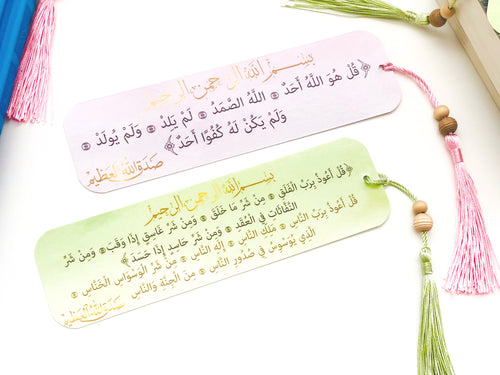 بسم الله الرحمن الرحيم
﴿قُلْ هُوَ اللَّهُ أَحَدٌ ۞ اللَّهُ الصَّمَدُ ۞ لَمْ يَلِدْ ۞ وَلَمْ يُولَدْ ۞
وَلَمْ يَكُنْ لَهُ كُفُوًا أَحَدٌ﴾
صدق الله العظيم
بسم الله الرحمن الرحيم
﴿قُلْ أَعُوذُ بِرَبِّ الْفَلَقِ ۞ مِنْ شَرِّ مَا خَلَقَ ۞ وَمِنْ شَرِّ غَاسِقٍ إِذَا وَقَبَ ۞ وَمِنْ شَرِّ
النَّفَّاثَاتِ فِي الْعُقَدِ ۞ وَمِنْ شَرِّ حَاسِدٍ إِذَا حَسَدَ﴾
قُلْ أَعُوذُ بِرَبِّ النَّاسِ ۞ مَلِكِ النَّاسِ ۞ إِلَهِ النَّاسِ ۞ مِنْ شَرِّ الْوَسْوَاسِ الْخَنَّاسِ ۞
الَّذِي يُوَسْوِسُ فِي صُدُورِ النَّاسِ ۞ مِنَ الْجِنَّةِ وَالنَّاسِ
صدق الله العظيم